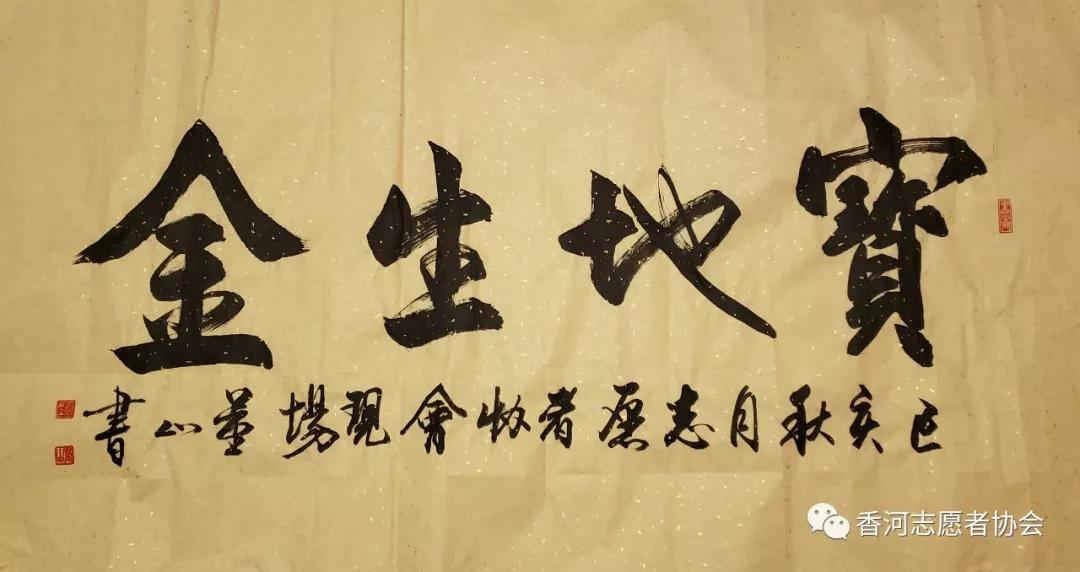 寶地生金
己亥秋月志愿者协會現場山書
香河志愿者协会